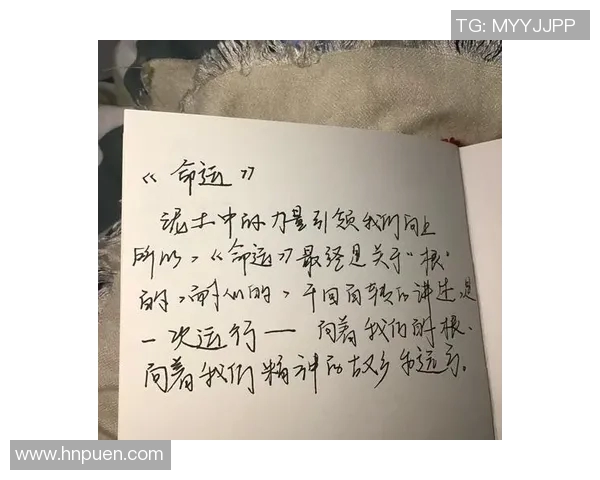 TG: MYYJJPP
《命运》
泥土中的力量引领我们向上
所以，《命运》最终是关于“根”
的，耐人的，千回百转的讲述，是
一次运行— 向着我们的根、
向着我们精神的故乡的运行。
www.hnpuen.com